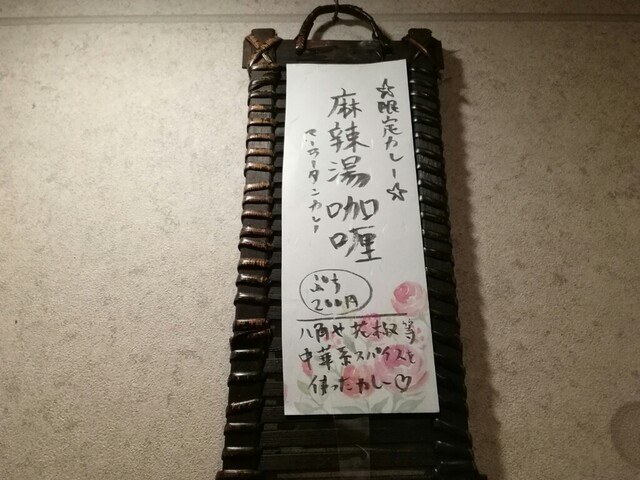 ☆限定カレー☆
麻辣湯咖喱
マーラータンカレー
ぷち
200円
八角や花椒等
中華系スパイスを
使ったカレー♡